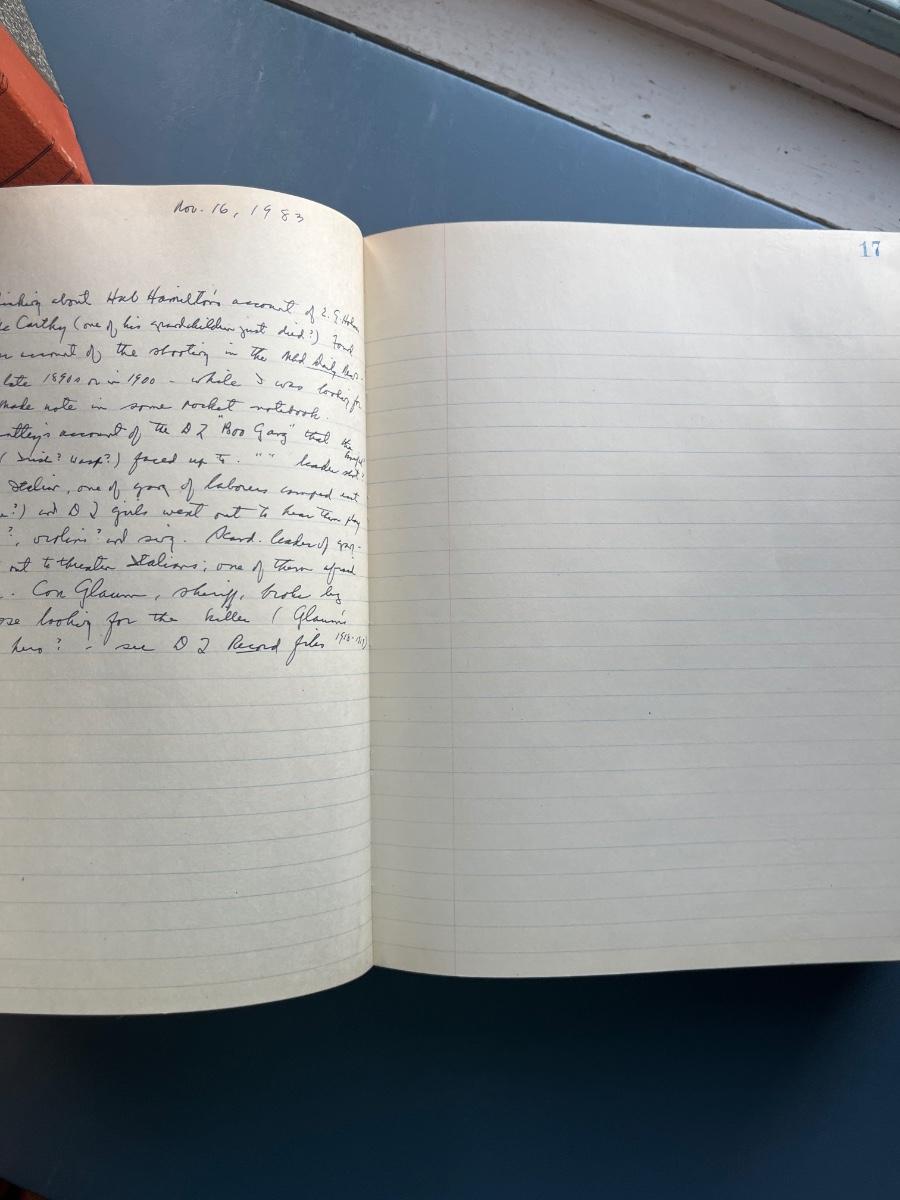 Nov. 16, 1983
17
about Hal Hamilton's account of
Carthy (one of his grandchildren just died?) Found
account of the shooting in the Mhd Daily News -
late 1890s or in 1900 - while I was looking for
made note in some pocket notebook.
account of the D Z "Boo Gang" that the
( Irish? Wasp?) faced up to. " " leader shot?
Italian, one of gang of laborers camped out
?) and D Z girls went out to hear them play
?, violins? and sing. leader of gang -
out to threaten Italians; one of them afraid
. Con Glaum, sheriff, broke leg
looking for the killer ( Glaum's
hero? - see D Z Record files